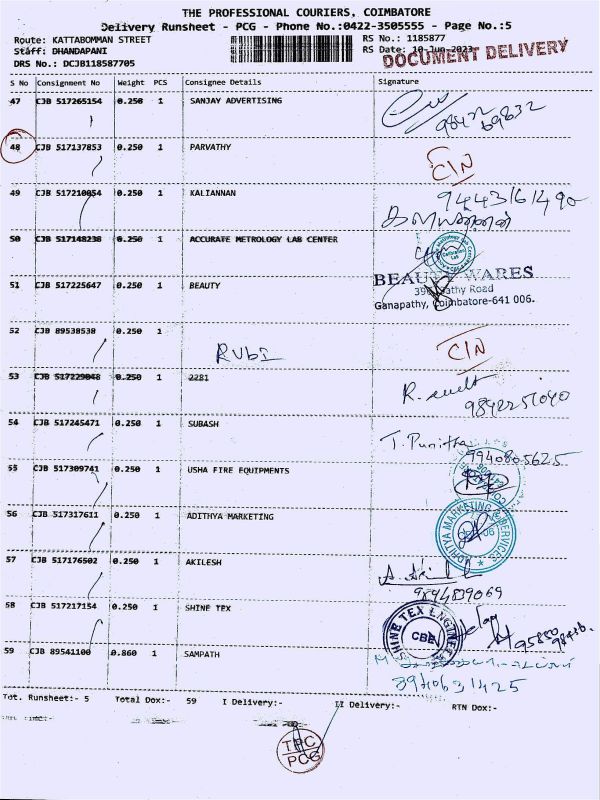 THE PROFESSIONAL COURIERS, COIMBATORE
Delivery Runsheet - PCG - Phone No.:0422-3505555 - Page No.:5
Route: KATTABOMMAN STREET RS No.: 1185877
Staff: DHANDAPANI RS Date: 10-Jun-2023
DOCUMENT DELIVERY
DRS No.: DCJB118587705
S No Consignment No Weight PCS Consignee Details Signature
47 CJB 517265154 0.250 1 SANJAY ADVERTISING
98422 69832
48 CJB 517137853 0.250 1 PARVATHY
C/N
49 CJB 517210054 0.250 1 KALIANNAN
9443161490
50 CJB 517148238 0.250 1 ACCURATE METROLOGY LAB CENTER
51 CJB 517225647 0.250 1 BEAUTY
BEAUTY WARES
Road
Ganapathy, Coimbatore-641 006.
52 CJB 89538538 0.250 1
RUBI C/N
53 CJB 517229048 0.250 1 2281
9842251040
54 CJB 517245471 0.250 1 SUBASH
T. Punitha
9940805625
55 CJB 517309741 0.250 1 USHA FIRE EQUIPMENTS
56 CJB 517317611 0.250 1 ADITHYA MARKETING
ADHITYA MARKETING & SERVICES
57 CJB 517176502 0.250 1 AKILESH
9894839069
58 CJB 517217154 0.250 1 SHINE TEX
SHINE TEX ENGINEER
CBE
59 CJB 89541100 0.860 1 SAMPATH
8940631425
Tot. Runsheet:- 5 Total Dox:- 59 I Delivery:- II Delivery:- RTN Dox:-
TPC
PCG